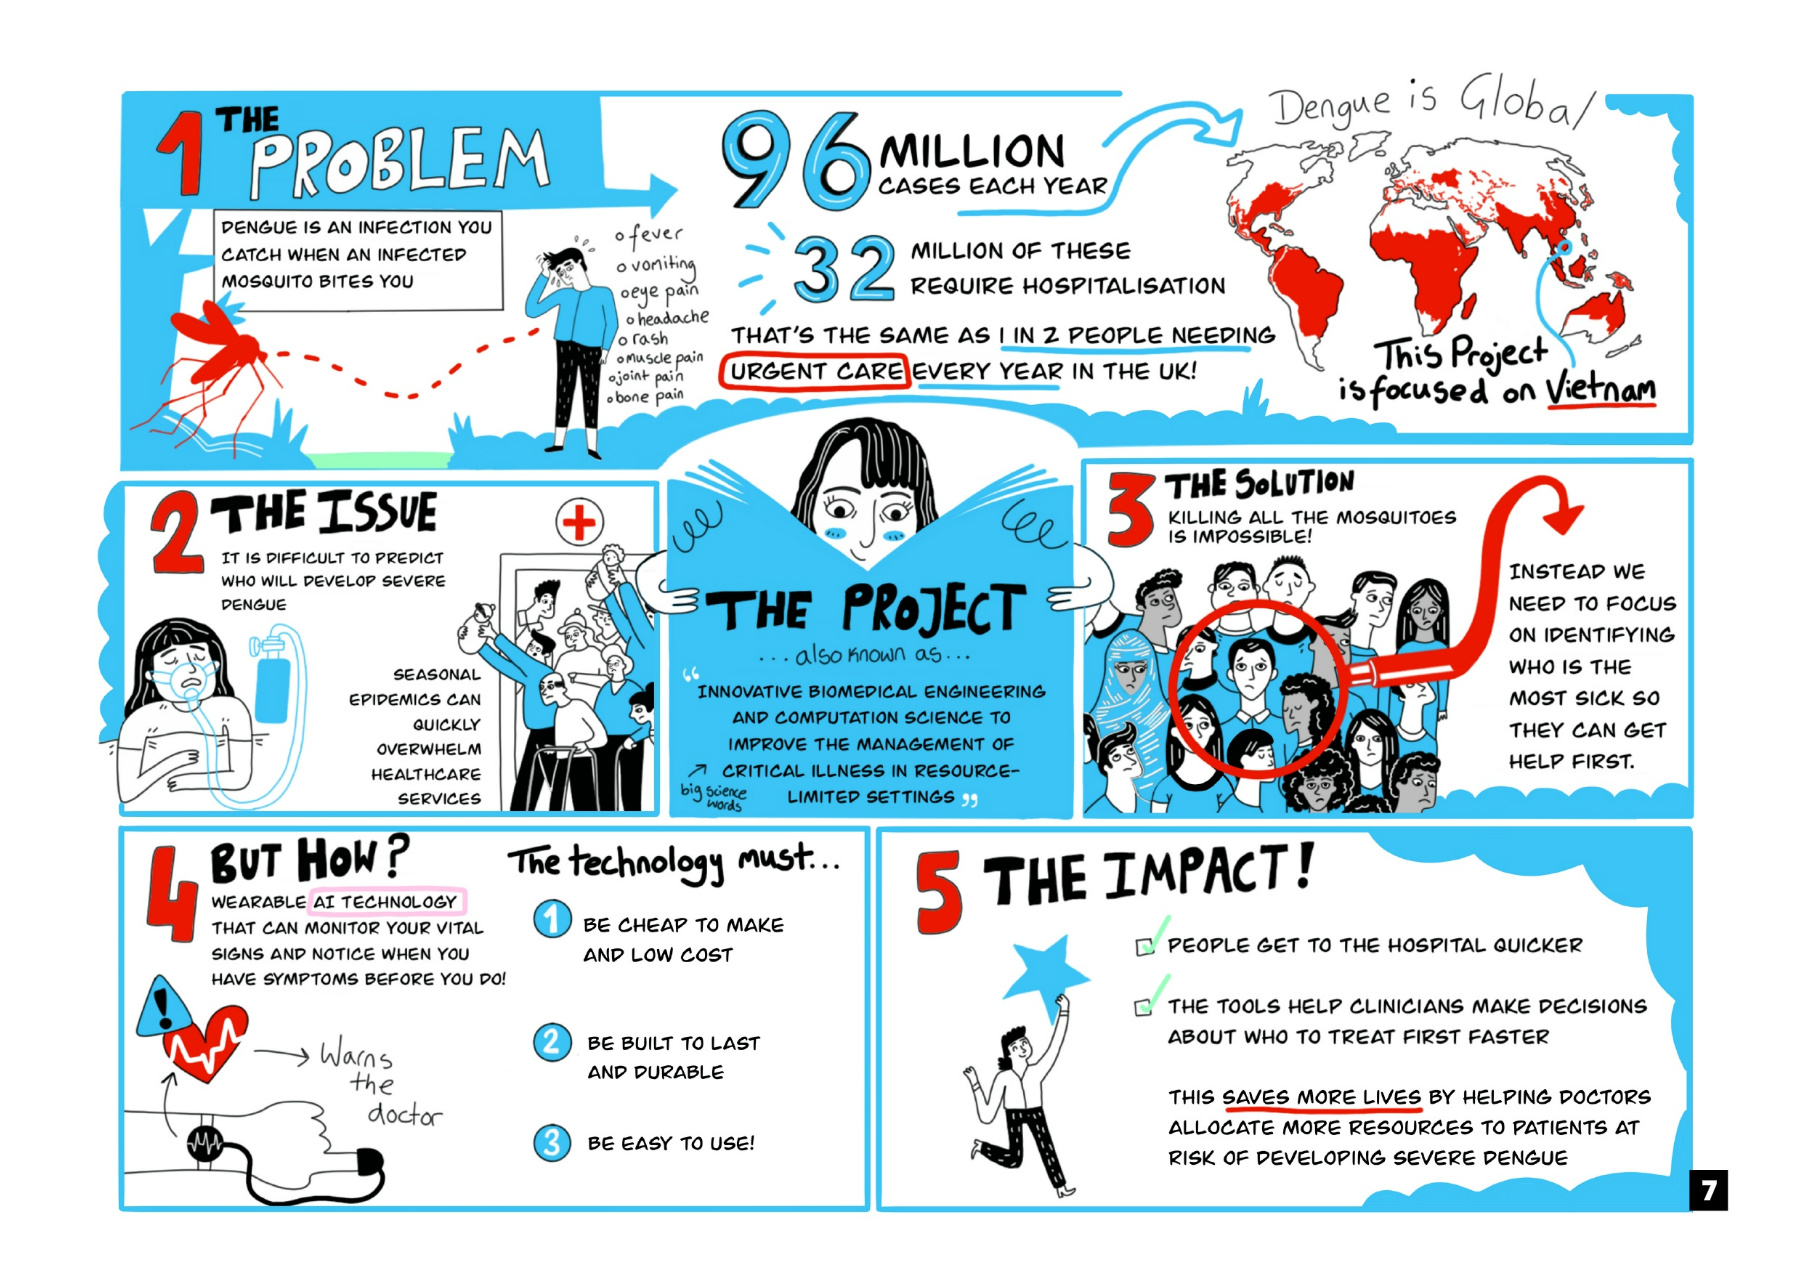 1 THE
PROBLEM
DENGUE IS AN INFECTION YOU
CATCH WHEN AN INFECTED
MOSQUITO BITES YOU
o fever
o vomiting
o eye pain
o headache
o rash
o muscle pain
o joint pain
o bone pain
96 MILLION
CASES EACH YEAR
32 MILLION OF THESE
REQUIRE HOSPITALISATION
THAT'S THE SAME AS 1 IN 2 PEOPLE NEEDING
URGENT CARE EVERY YEAR IN THE UK!
Dengue is Global
This Project
is focused on Vietnam
2 THE ISSUE
IT IS DIFFICULT TO PREDICT
WHO WILL DEVELOP SEVERE
DENGUE
SEASONAL
EPIDEMICS CAN
QUICKLY
OVERWHELM
HEALTHCARE
SERVICES
THE PROJECT
...also known as...
"INNOVATIVE BIOMEDICAL ENGINEERING
AND COMPUTATION SCIENCE TO
IMPROVE THE MANAGEMENT OF
CRITICAL ILLNESS IN RESOURCE-
LIMITED SETTINGS"
big science
words
3 THE SOLUTION
KILLING ALL THE MOSQUITOES
IS IMPOSSIBLE!
INSTEAD WE
NEED TO FOCUS
ON IDENTIFYING
WHO IS THE
MOST SICK SO
THEY CAN GET
HELP FIRST.
4 BUT HOW?
WEARABLE AI TECHNOLOGY
THAT CAN MONITOR YOUR VITAL
SIGNS AND NOTICE WHEN YOU
HAVE SYMPTOMS BEFORE YOU DO!
!
Warns
the
doctor
The technology must...
1 BE CHEAP TO MAKE
AND LOW COST
2 BE BUILT TO LAST
AND DURABLE
3 BE EASY TO USE!
5 THE IMPACT!
PEOPLE GET TO THE HOSPITAL QUICKER
THE TOOLS HELP CLINICIANS MAKE DECISIONS
ABOUT WHO TO TREAT FIRST FASTER
THIS SAVES MORE LIVES BY HELPING DOCTORS
ALLOCATE MORE RESOURCES TO PATIENTS AT
RISK OF DEVELOPING SEVERE DENGUE
7